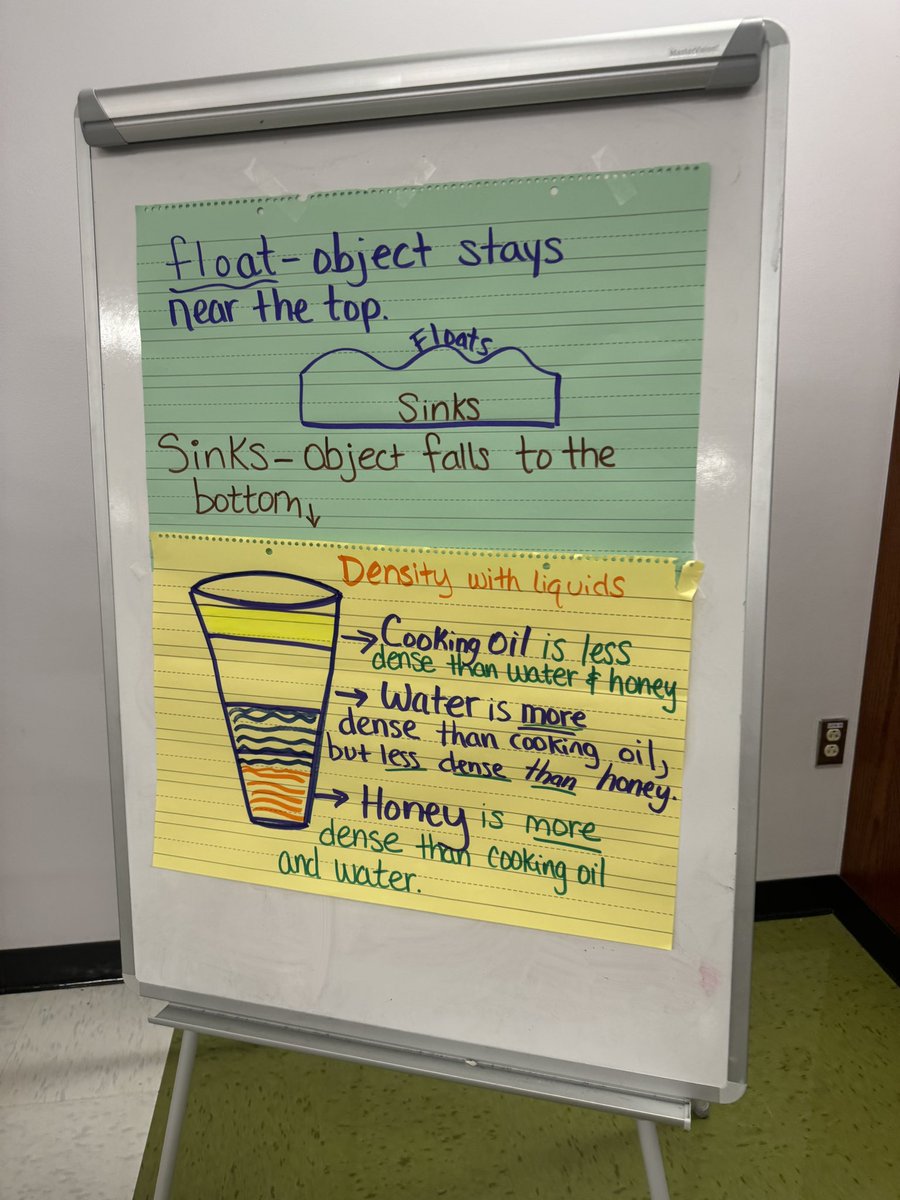 MasterVision
float - object stays
near the top.
Floats
Sinks
Sinks - object falls to the
bottom ↓
Density with liquids
→ Cooking Oil is less
dense than water & honey
→ Water is more
dense than cooking oil,
but less dense than honey.
→ Honey is more
dense than cooking oil
and water.